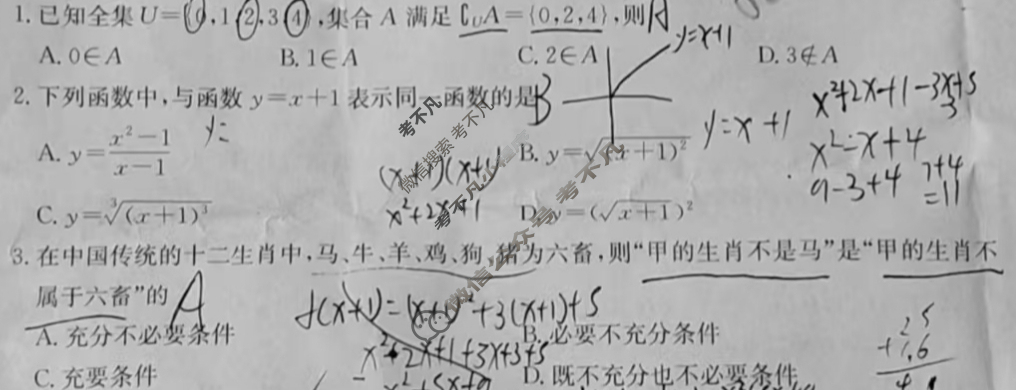 1. 已知全集 U={0,1,2,3,4},集合 A 满足 ∁UA={0,2,4},则 A
A. 0∈A B. 1∈A C. 2∈A D. 3∉A
y=x+1
2. 下列函数中,与函数 y=x+1 表示同一函数的是 B
x²+2x+1-3x+5
3
A. y=(x²-1)/(x-1) y= B. y=√(x+1)² y=x+1
x²-x+4
9-3+4 7+4
=11
C. y=∛(x+1)³ x²+2x+1 D. y=(√x+1)²
考不凡
微信搜索 考不凡
微信公众号 考不凡
3. 在中国传统的十二生肖中,马、牛、羊、鸡、狗、猪为六畜,则“甲的生肖不是马”是“甲的生肖不
属于六畜”的 A
f(x+1)=(x+1)²+3(x+1)+5
A. 充分不必要条件 B. 必要不充分条件
x²+2x+1+3x+3+5
C. 充要条件 D. 既不充分也不必要条件